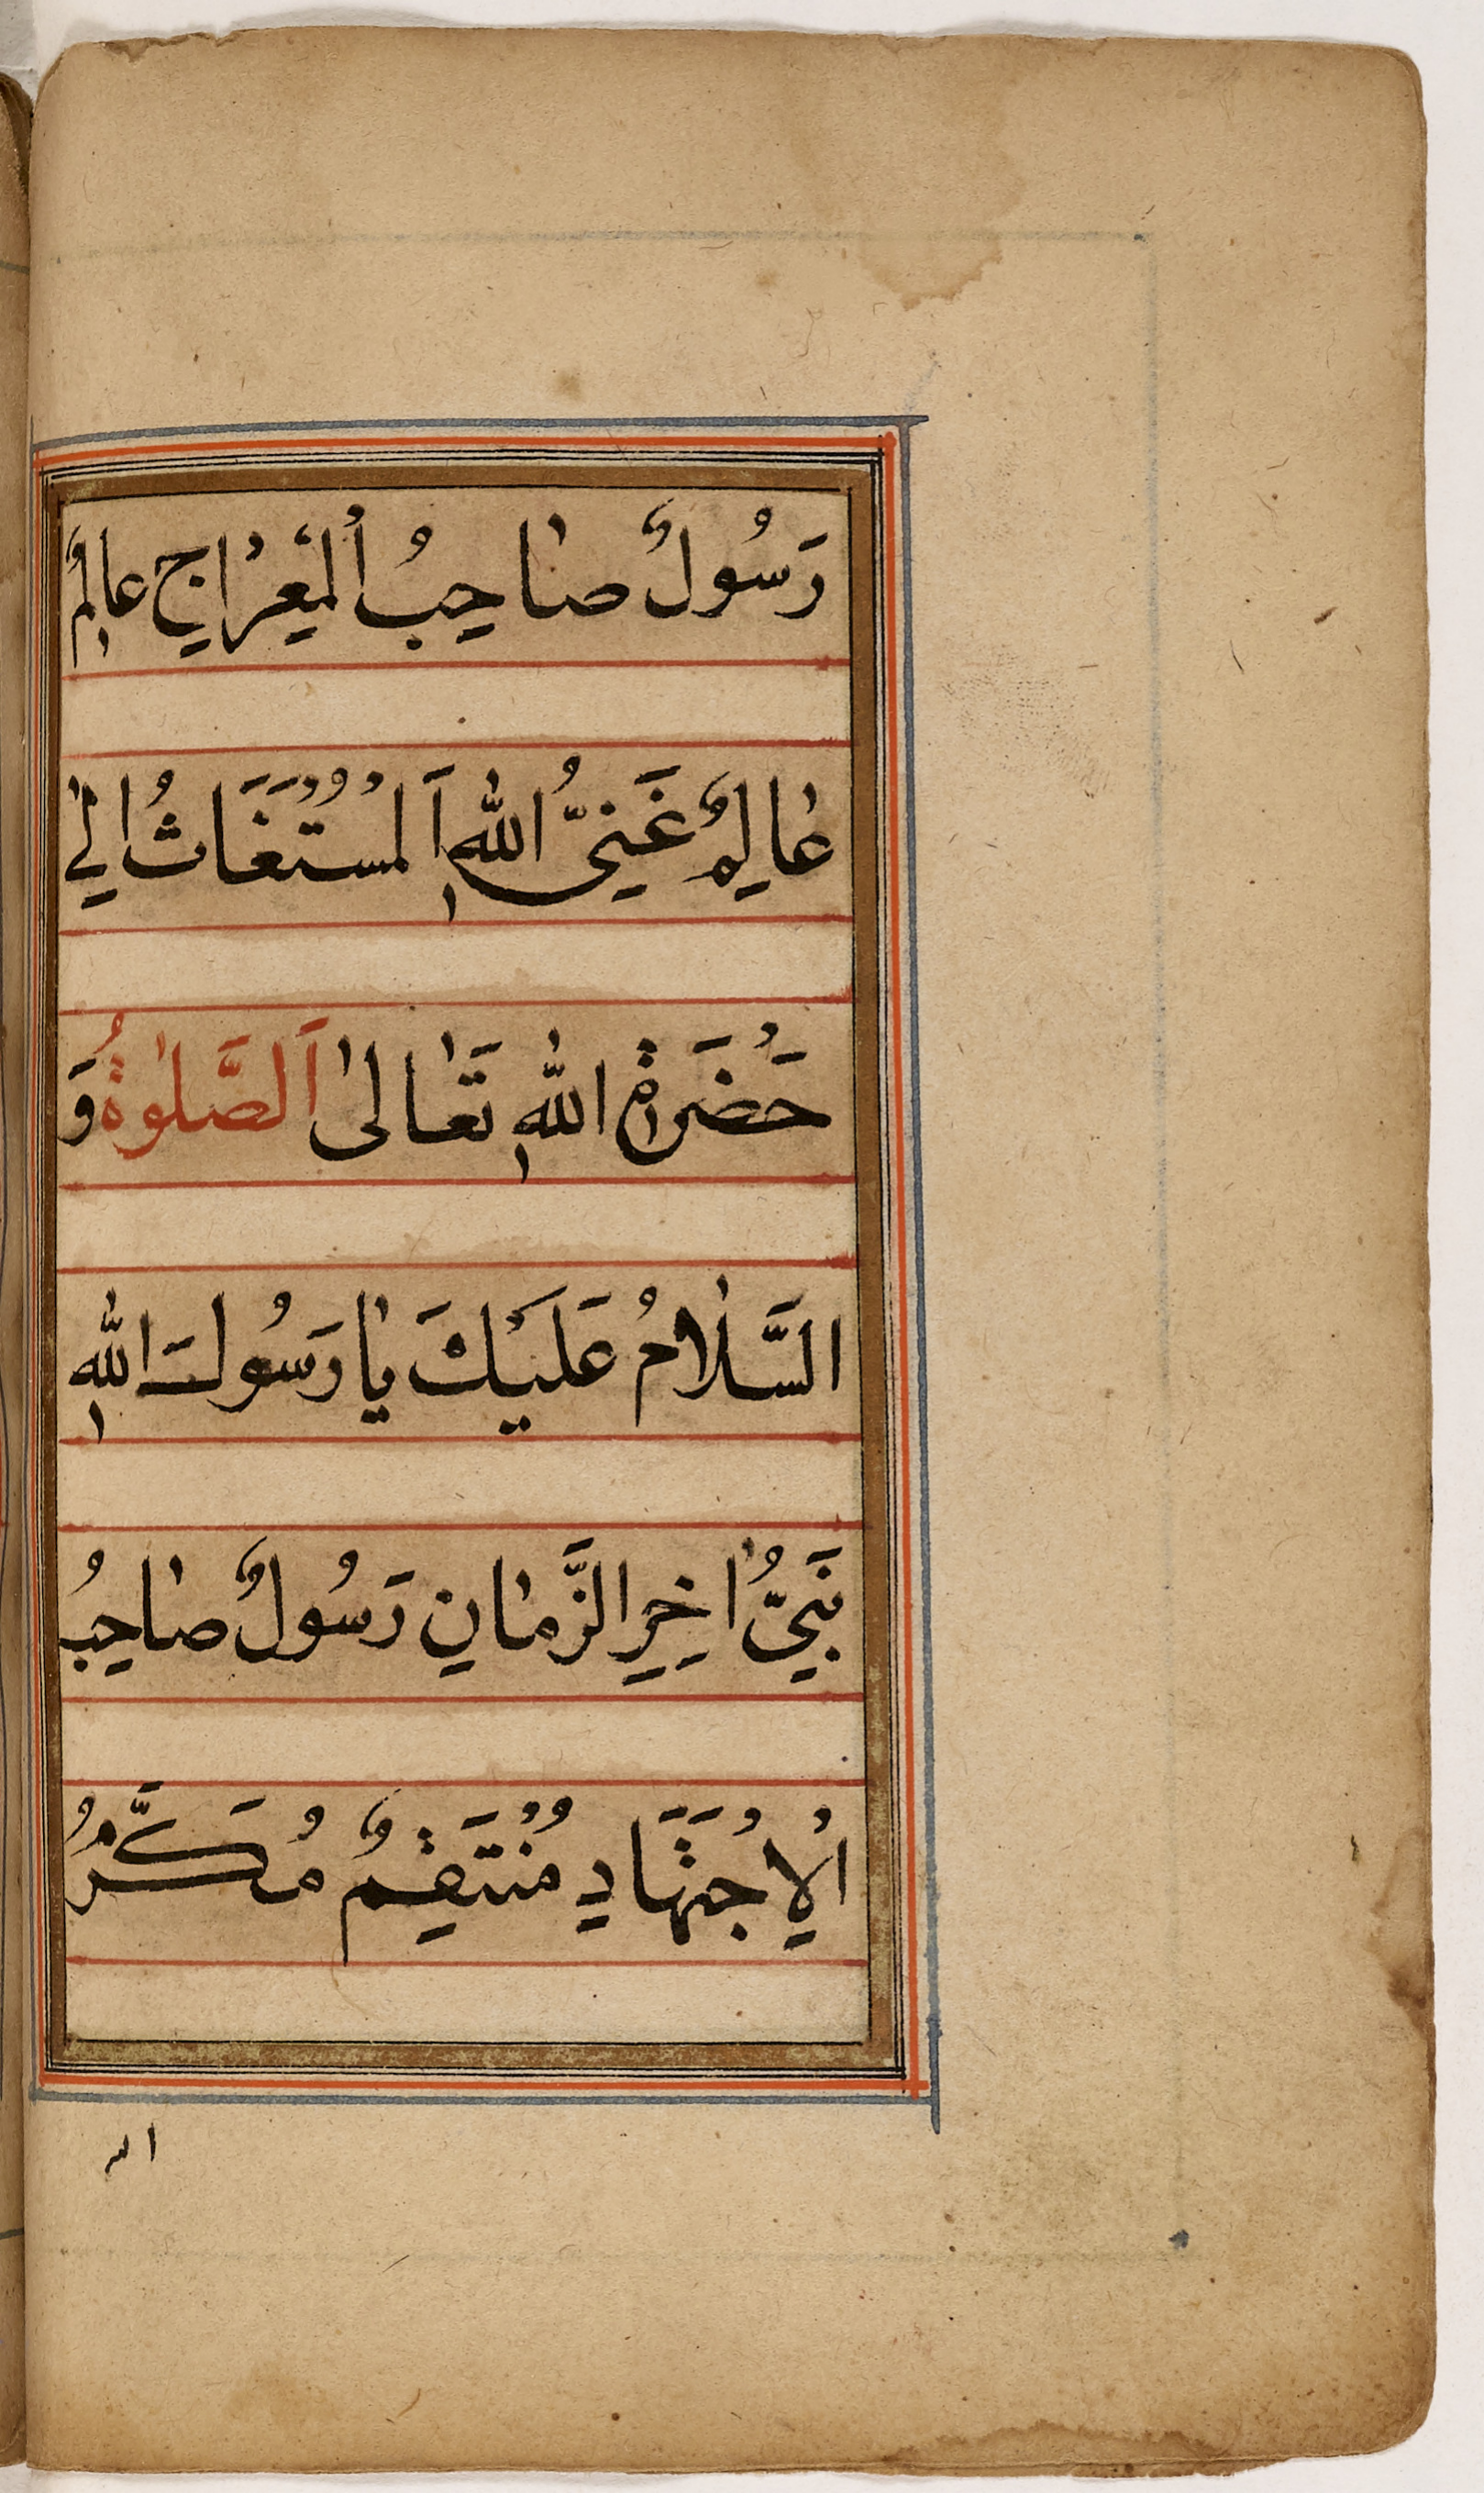 رَسُولٌ صاحِبُ الْمِعْراجِ عالِمٌ
عالِمٌ غَنِيُّ اللّٰهِ اَلْمُسْتَغَاثُ اِلٰي
حَضْرَةِ اللّٰهِ تَعالىٰ اَلصَّلٰوةُ وَ
السَّلامُ عَلَيْكَ يا رَسُولَ اللّٰهِ
نَبِيُّ اخِرِ الزَّمانِ رَسُولٌ صاحِبُ
الْاِجْتِهَادِ مُنْتَقِمٌ مُكَرَّمُ